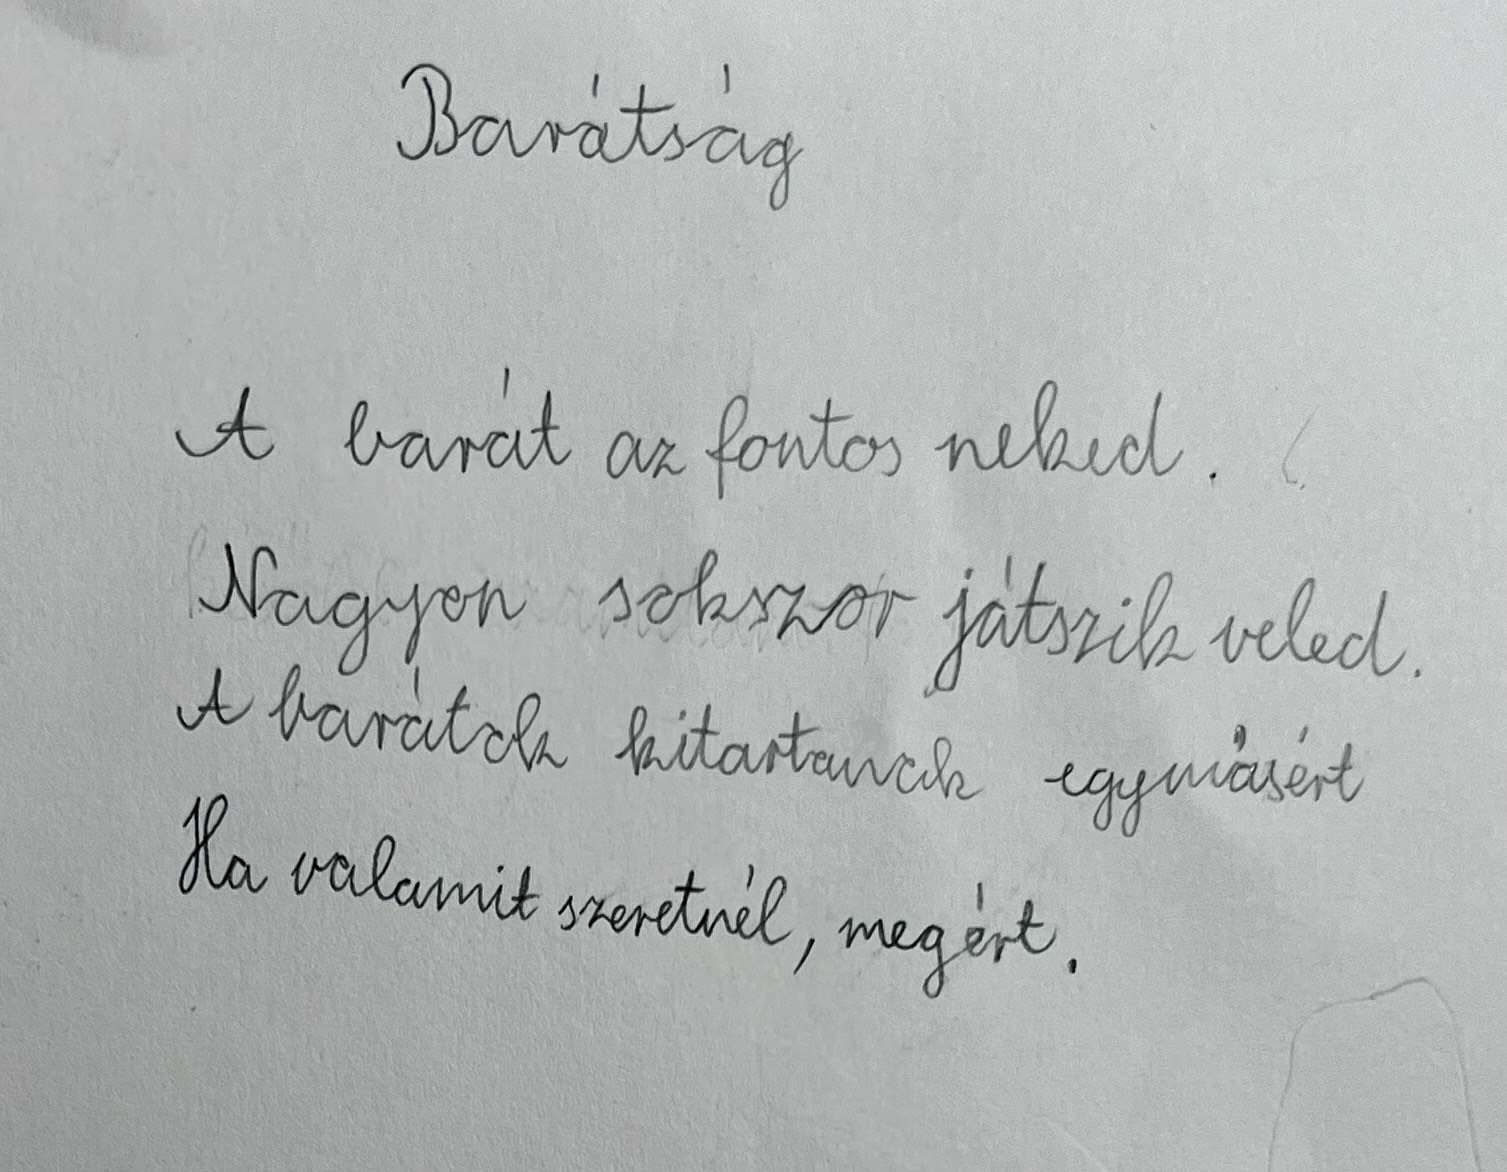 Barátság
A barát az fontos neked.
Nagyon sokszor játszik veled.
A barátok kitartanak egymásért
Ha valamit szeretnél, megért.